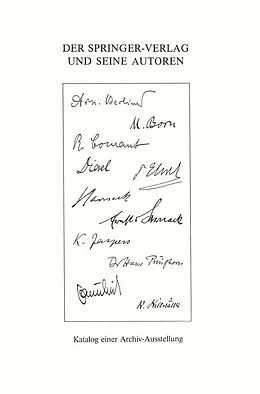 DER SPRINGER-VERLAG
UND SEINE AUTOREN
Arn. Berliner
M. Born
R. Courant
Diesel
P Ehrlich
Harnack
K. Jaspers
Dr Hans Prinzhorn
Katalog einer Archiv-Ausstellung